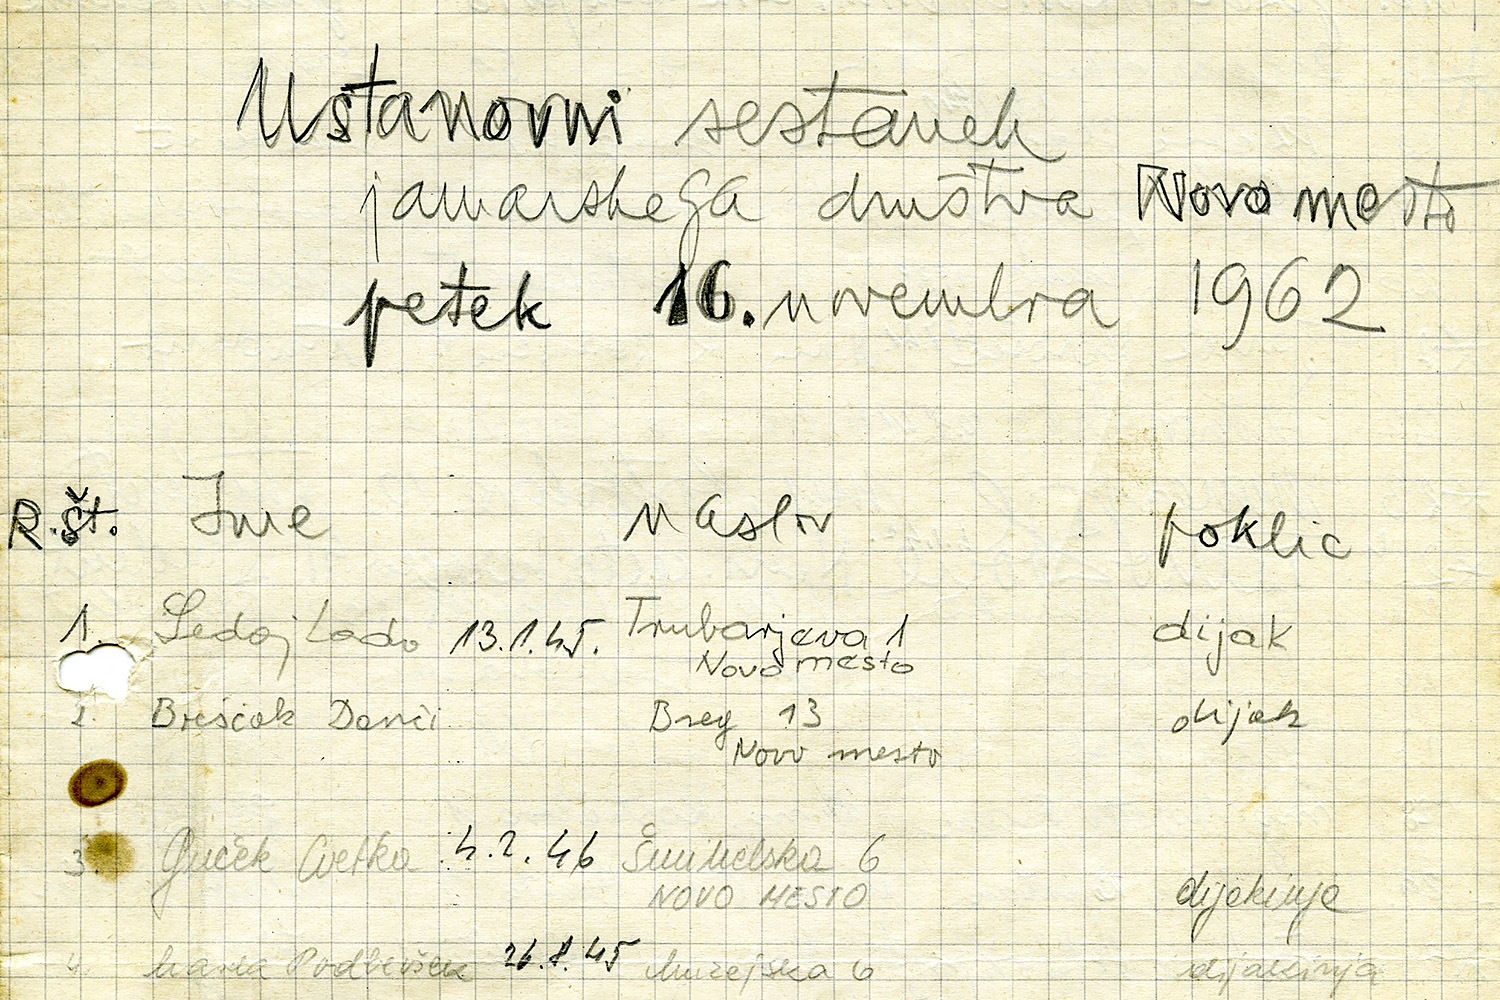 Ustanovni sestanek
jamarskega društva Novo mesto
petek 16. novembra 1962
R.št. Ime naslov poklic
1. Sedaj Lado 13.1.45. Trubarjeva 1 dijak
Novo mesto
2. Breščak Danči Breg 13 dijak
Novo mesto
3. Guček Cvetka 4.2.46 Šmihelska 6
NOVO MESTO dijakinja
4. Podbevšek Muzejska 6 dijakinja